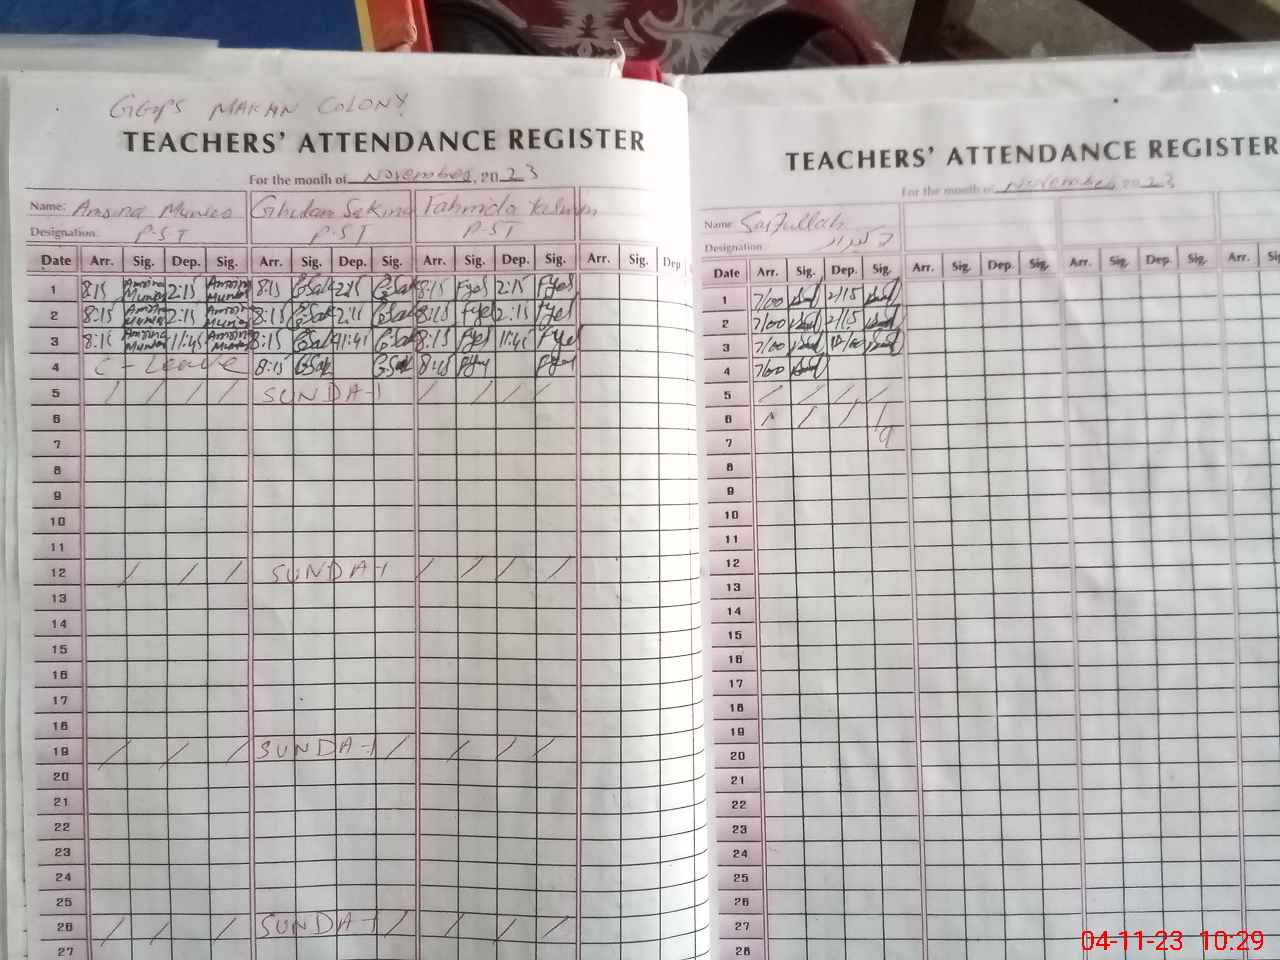 GGPS MAKAN COLONY
TEACHERS' ATTENDANCE REGISTER
For the month of November, 2023
Name: Amsina Ghulam Sakina Fahmida
Designation: P-ST P-ST P-ST
Date Arr. Sig. Dep. Sig. Arr. Sig. Dep. Sig. Arr. Sig. Dep. Sig. Arr. Sig. Dep
1 8:15 Amsina 2:15 Amsina 8:15 GSak 2:15 GSak 8:15 Fyel 2:15 Fyel
2 8:15 2:15 8:15 GSak 2:15 GSak 8:15 Fyel 2:15 Fyel
3 8:15 11:45 8:15 GSak 11:45 GSak 8:15 Fyel 11:45 Fyel
4 C - Leave 8:15 GSak GSak 8:15 Fyel Fyel
5 / / / / SUNDAY / / / /
6
7
8
9
10
11
12 / / / SUNDAY / / / /
13
14
15
16
17
18
19 / / / SUNDAY / / / /
20
21
22
23
24
25
26 / / / SUNDAY / / / /
27
TEACHERS' ATTENDANCE REGISTER
For the month of November, 2023
Name Saifullah
Designation
Date Arr. Sig. Dep. Sig. Arr. Sig. Dep. Sig. Arr. Sig. Dep. Sig. Arr. Sig.
1 7/00 2/15
2 7/00 2/15
3 7/00 12/00
4 7/00
5 / / / /
6 / / / /
7
8
9
10
11
12
13
14
15
16
17
18
19
20
21
22
23
24
25
26
27
28
04-11-23 10:29